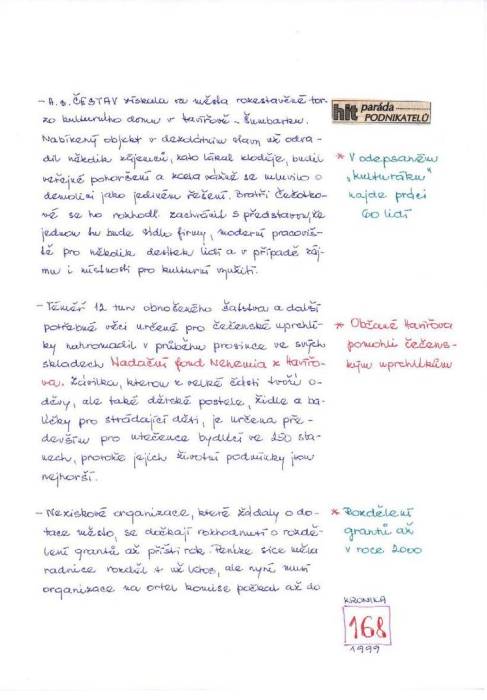 - A.s. ČESTAV získala za města rozestavěné tor-
zo kulturního domu v Havířově - Šumbarku.
Nabízený objekt v dezolátním stavu už odra-
dil několik zájemců, zato lákal zloděje, budil
veřejné pohoršení a zcela vážně se mluvilo o
demolici jako jediném řešení. Bratři Čežotko-
vé se ho rozhodli zachránit s představou, že
jednou tu bude sídlo firmy, moderní pracoviš-
tě pro několik desítek lidí a v případě záj-
mu i místnosti pro kulturní využití.
hit paráda
PODNIKATELŮ
* V odepsaném
"kulturáku"
najde práci
60 lidí
- Téměř 12 tun obnošeného šatstva a další
potřebné věci určené pro čečenské uprchlí-
ky nahromadil v průběhu prosince ve svých
skladech Nadační fond Nehemia z Havířo-
va. Zásilka, kterou z velké části tvoří o-
děvy, ale také dětské postele, židle a ba-
líčky pro strádající děti, je určena pře-
devším pro utečence bydlící ve 250 sta-
nech, protože jejich životní podmínky jsou
nejhorší.
* Občané Havířova
pomohli čečens-
kým uprchlíkům
- Neziskové organizace, které žádaly o do-
tace město, se dočkají rozhodnutí o rozdě-
lení grantů až příští rok. Peníze sice měla
radnice rozdělit už letos, ale nyní musí
organizace na ortel komise počkat až do
* Rozdělení
grantů až
v roce 2000
KRONIKA
168
1999